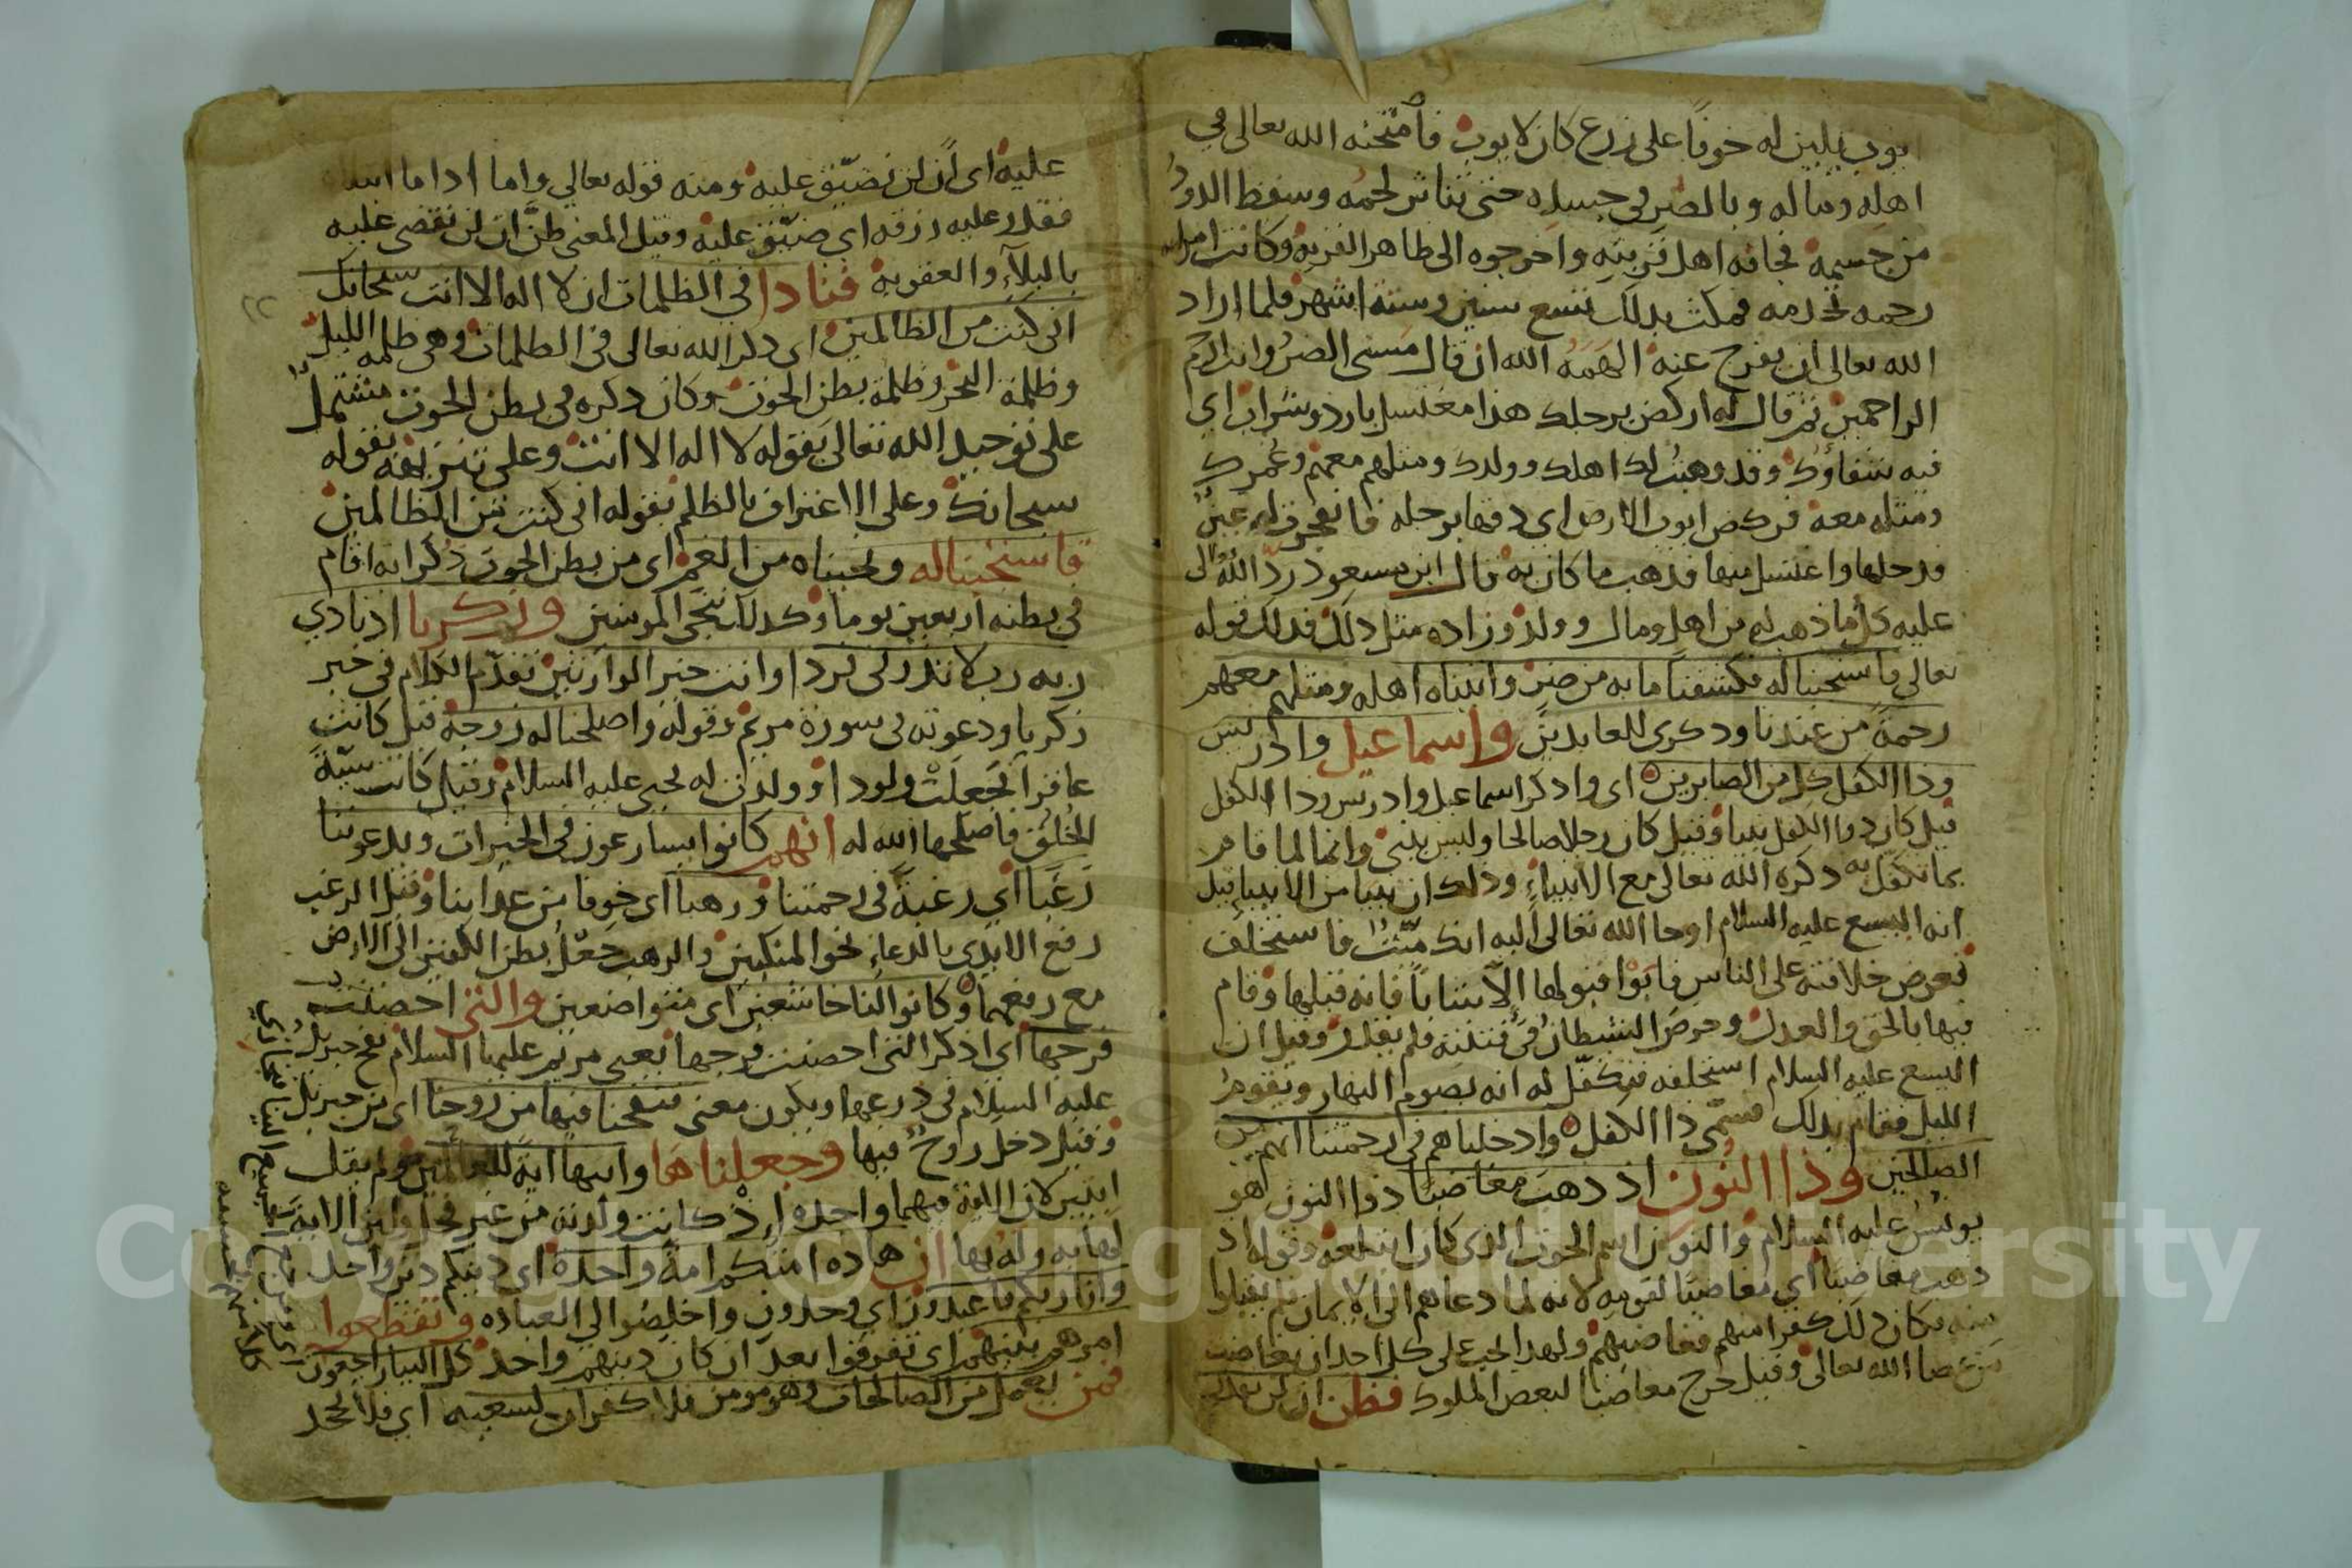 ايوب يلين له خوفا على زرع كان لايوب فامتحنه الله تعالى في
اهله وماله وبالضر في جسده حتى تناثر لحمه وسقط الدود
من جسمه فخافه اهل قريته واخرجوه الى ظاهر القرية وكانت امراته
رحمه تخدمه فمكث بذلك تسع سنين وستة اشهر فلما اراد
الله تعالى ان يفرج عنه الهمه الله ان قال مسني الضر وانت ارحم
الراحمين ثم قال له اركض برجلك هذا مغتسل بارد وشراب اي
فيه شفاؤك وقد وهبت لك اهلك وولدك ومثلهم معهم وعمرك
ومثله معه فركض ايوب الارض اي دفها برجله فانفجرت له عين
فدخلها واغتسل منها فذهب ما كان به قال ابن مسعود رد الله تعالى
عليه كل ما ذهب له من اهل ومال وولد وزاده مثل ذلك فذلك قوله
تعالى فاستجبنا له فكشفنا ما به من ضر واتيناه اهله ومثلهم معهم
رحمة من عندنا وذكرى للعابدين واسماعيل وادريس
وذا الكفل كل من الصابرين اي واذكر اسماعيل وادريس وذا الكفل
قيل كان ذوا الكفل نبيا وقيل كان رجلا صالحا وليس بنبي وانما لما قام
بما تكفل به ذكره الله تعالى مع الانبياء وذلك ان نبيا من الانبيا قيل
انه اليسع عليه السلام اوحا الله تعالى اليه انك ميت فاستخلف
فعرض خلافته على الناس فابوا قبولها الا شابا فانه قبلها وقام
فيها بالحق والعدل وحرض الشيطان في فتنته فلم يقدر وقيل ان
اليسع عليه السلام استخلفه فتكفل له انه يصوم النهار ويقوم
الليل فقام بذلك فسمي ذا الكفل وادخلناهم في رحمتنا انهم من
الصالحين وذا النون اذ ذهب مغاضبا ذوا النون هو
يونس عليه السلام والنون اسم الحوت الذي كان ابتلعه وقوله اذ
ذهب مغاضبا اي مغاضبا لقومه لانه لما دعاهم الى الايمان لم يقبلوا
منه فكان ذلك كفرا منهم فغاضبهم ولهذا يجب على كل احد ان يغاضب
من عصا الله تعالى وقيل خرج مغاضبا لبعض الملوك فظن ان لن نقدر
عليه اي ان لن نضيق عليه ومنه قوله تعالى واما اذا ما ابتلاه
فقدر عليه رزقه اي ضيق عليه وقيل المعنى ظن ان لن نقضي عليه
بالبلآء والعقوبه فنادا في الظلمات ان لا اله الا انت سبحانك
اني كنت من الظالمين اي ذكر الله تعالى في الظلمات وهي ظلمه الليل
وظلمة البحر وظلمة بطن الحوت وكان ذكره في بطن الحوت مشتملا
على توحيد الله تعالى بقوله لا اله الا انت وعلى تنزيهه بقوله
سبحانك وعلى الاعتراف بالظلم بقوله اني كنت من الظالمين
فاستجبنا له ونجيناه من الغم اي من بطن الحوت ذكر انه اقام
في بطنه اربعين يوما وكذلك ننجي المومنين وزكريا اذ نادي
ربه رب لا تذرني فردا وانت خير الوارثين تقدم الكلام في خبر
زكريا ودعوته في سورة مريم وقوله واصلحنا له زوجه قيل كانت
عاقرا فجعلت ولودا وولدت له يحيى عليه السلام وقيل كانت سيئة
الخلق فاصلحها الله له انهم كانوا يسارعون في الخيرات ويدعوننا
رغبا اي رغبة في رحمتنا ورهبا اي خوفا من عذابنا وقيل الرغب
رفع الايدي بالدعاء نحو المنكبين والرهب جعل بطن الكفين الى الارض
مع رفعهما وكانوا لنا خاشعين اي متواضعين والتي احصنت
فرجها اي اذكر التي احصنت فرجها يعني مريم عليها السلام نفخ جبريل
عليه السلام في درعها ويكون معنى فنفخنا فيها من روحنا اي من جبريل
وقيل دخل روح فيها وجعلناها وابنها اية للعالمين ولم يقل
ايتين لان الاية فيهما واحده اذ كانت ولدته من غير فحل ولان الاية
لها به وله بها ان هاذه امتكم امة واحدة اي دينكم دين واحد
وانا ربكم فاعبدون اي وحدون واخلصوا لي العباده وتقطعوا
امرهم بينهم اي تفرقوا بعد ان كان دينهم واحد كل الينا راجعون
فمن يعمل من الصالحات وهو مومن فلا كفران لسعيه اي فلا نجحد
Copyright © King Saud University